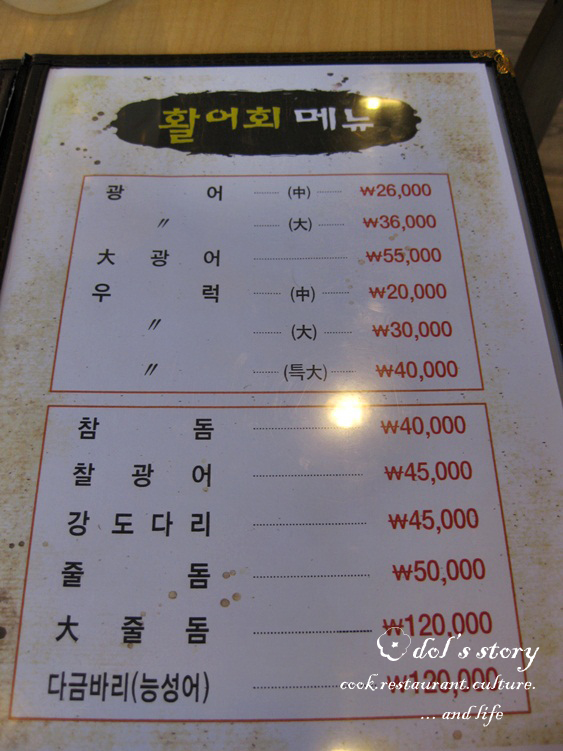 활어회 메뉴
광 어 (中) ₩26,000
〃 (大) ₩36,000
大 광 어 ₩55,000
우 럭 (中) ₩20,000
〃 (大) ₩30,000
〃 (특大) ₩40,000
참 돔 ₩40,000
찰 광 어 ₩45,000
강 도 다 리 ₩45,000
줄 돔 ₩50,000
大 줄 돔 ₩120,000
다금바리(능성어) ₩120,000
dol's story
cook.restaurant.culture.
... and life